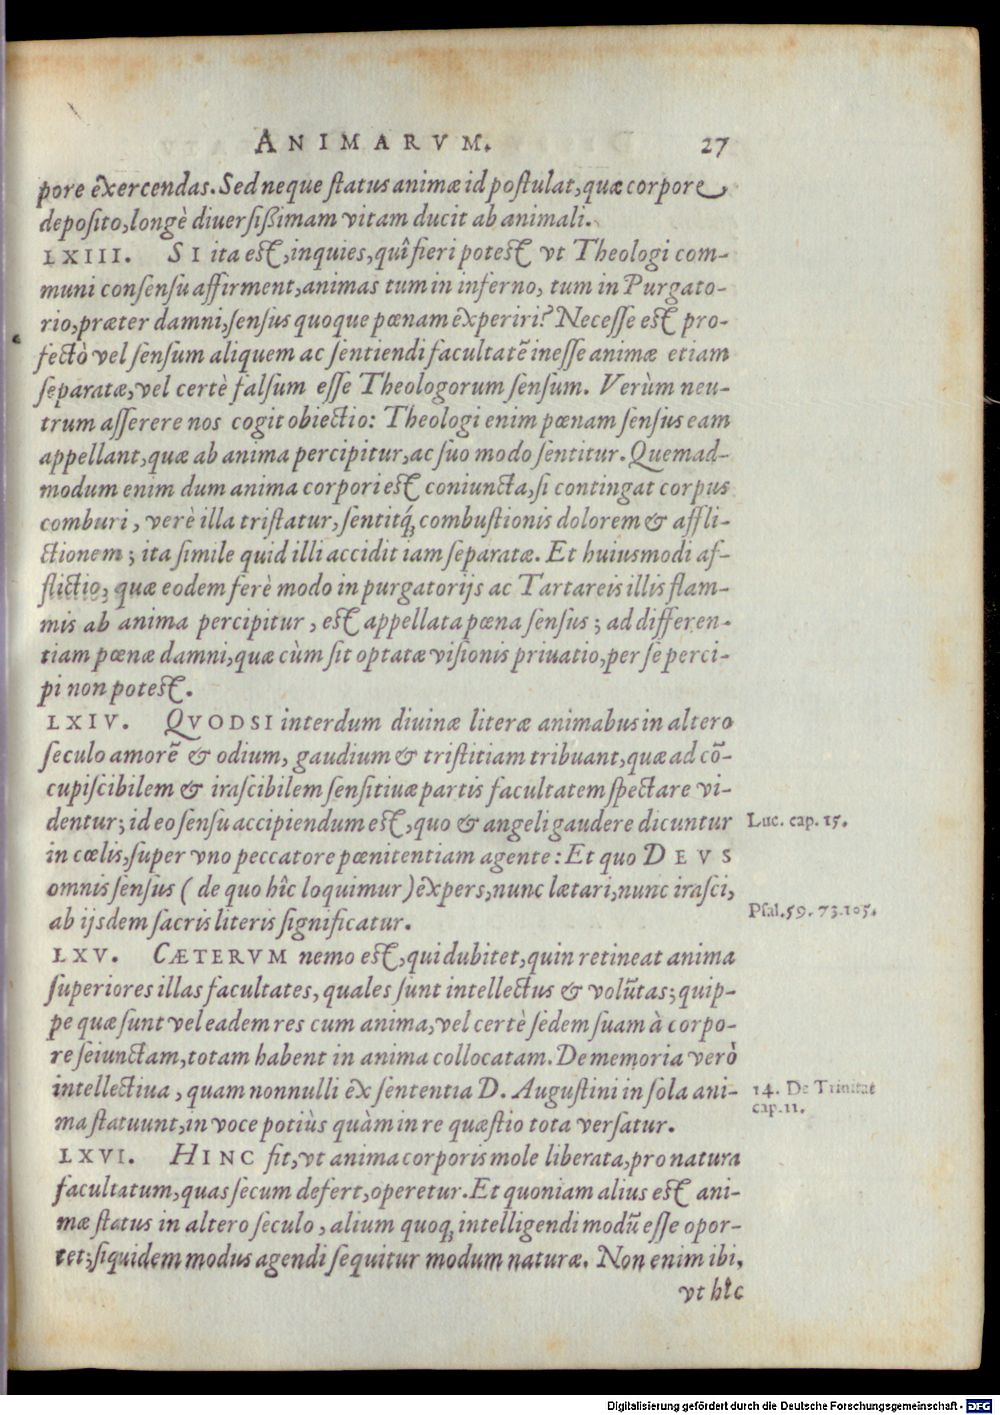 ANIMARVM. 27
pore exercendas. Sed neque status animæ id postulat, quæ corpore
deposito, longè diuersißimam vitam ducit ab animali.
LXIII. SI ita est, inquies, quî fieri potest vt Theologi com-
muni consensu affirment, animas tum in inferno, tum in Purgato-
rio, præter damni, sensus quoque pœnam experiri? Necesse est pro-
fectò vel sensum aliquem ac sentiendi facultatē inesse animæ etiam
separatæ, vel certè falsum esse Theologorum sensum. Verùm neu-
trum asserere nos cogit obiectio: Theologi enim pœnam sensus eam
appellant, quæ ab anima percipitur, ac suo modo sentitur. Quemad-
modum enim dum anima corpori est coniuncta, si contingat corpus
comburi, verè illa tristatur, sentitq́; combustionis dolorem & affli-
ctionem; ita simile quid illi accidit iam separatæ. Et huiusmodi af-
flictio, quæ eodem ferè modo in purgatorijs ac Tartareis illis flam-
mis ab anima percipitur, est appellata pœna sensus; ad differen-
tiam pœnæ damni, quæ cùm sit optatæ visionis priuatio, per se perci-
pi non potest.
LXIV. QVODSI interdum diuinæ literæ animabus in altero
seculo amorē & odium, gaudium & tristitiam tribuant, quæ ad cō-
cupiscibilem & irascibilem sensitiuæ partis facultatem spectare vi-
dentur; id eo sensu accipiendum est, quo & angeli gaudere dicuntur
in cœlis, super vno peccatore pœnitentiam agente: Et quo DEVS
omnis sensus (de quo hîc loquimur) expers, nunc lætari, nunc irasci,
ab ijsdem sacris literis significatur.
Luc. cap. 15.
Psal. 59. 73. 105.
LXV. CÆTERVM nemo est, qui dubitet, quin retineat anima
superiores illas facultates, quales sunt intellectus & volūtas; quip-
pe quæ sunt vel eadem res cum anima, vel certè sedem suam à corpo-
re seiunctam, totam habent in anima collocatam. De memoria verò
intellectiua, quam nonnulli ex sententia D. Augustini in sola ani-
ma statuunt, in voce potiùs quàm in re quæstio tota versatur.
14. De Trinitat
cap. 11.
LXVI. HINC fit, vt anima corporis mole liberata, pro natura
facultatum, quas secum defert, operetur. Et quoniam alius est ani-
mæ status in altero seculo, alium quoq; intelligendi modū esse opor-
tet; siquidem modus agendi sequitur modum naturæ. Non enim ibi,
vt hîc
Digitalisierung gefördert durch die Deutsche Forschungsgemeinschaft - DFG